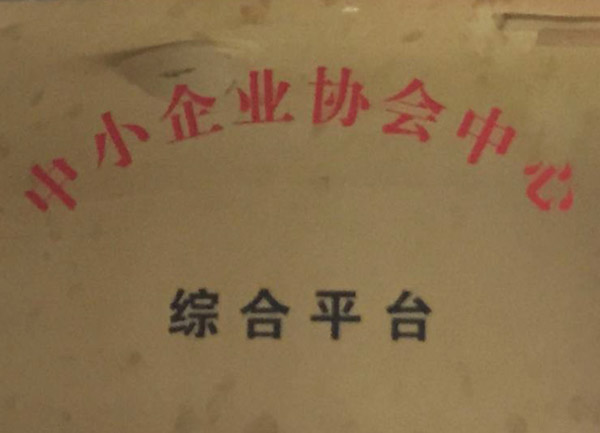 中小企业协会中心
综合平台